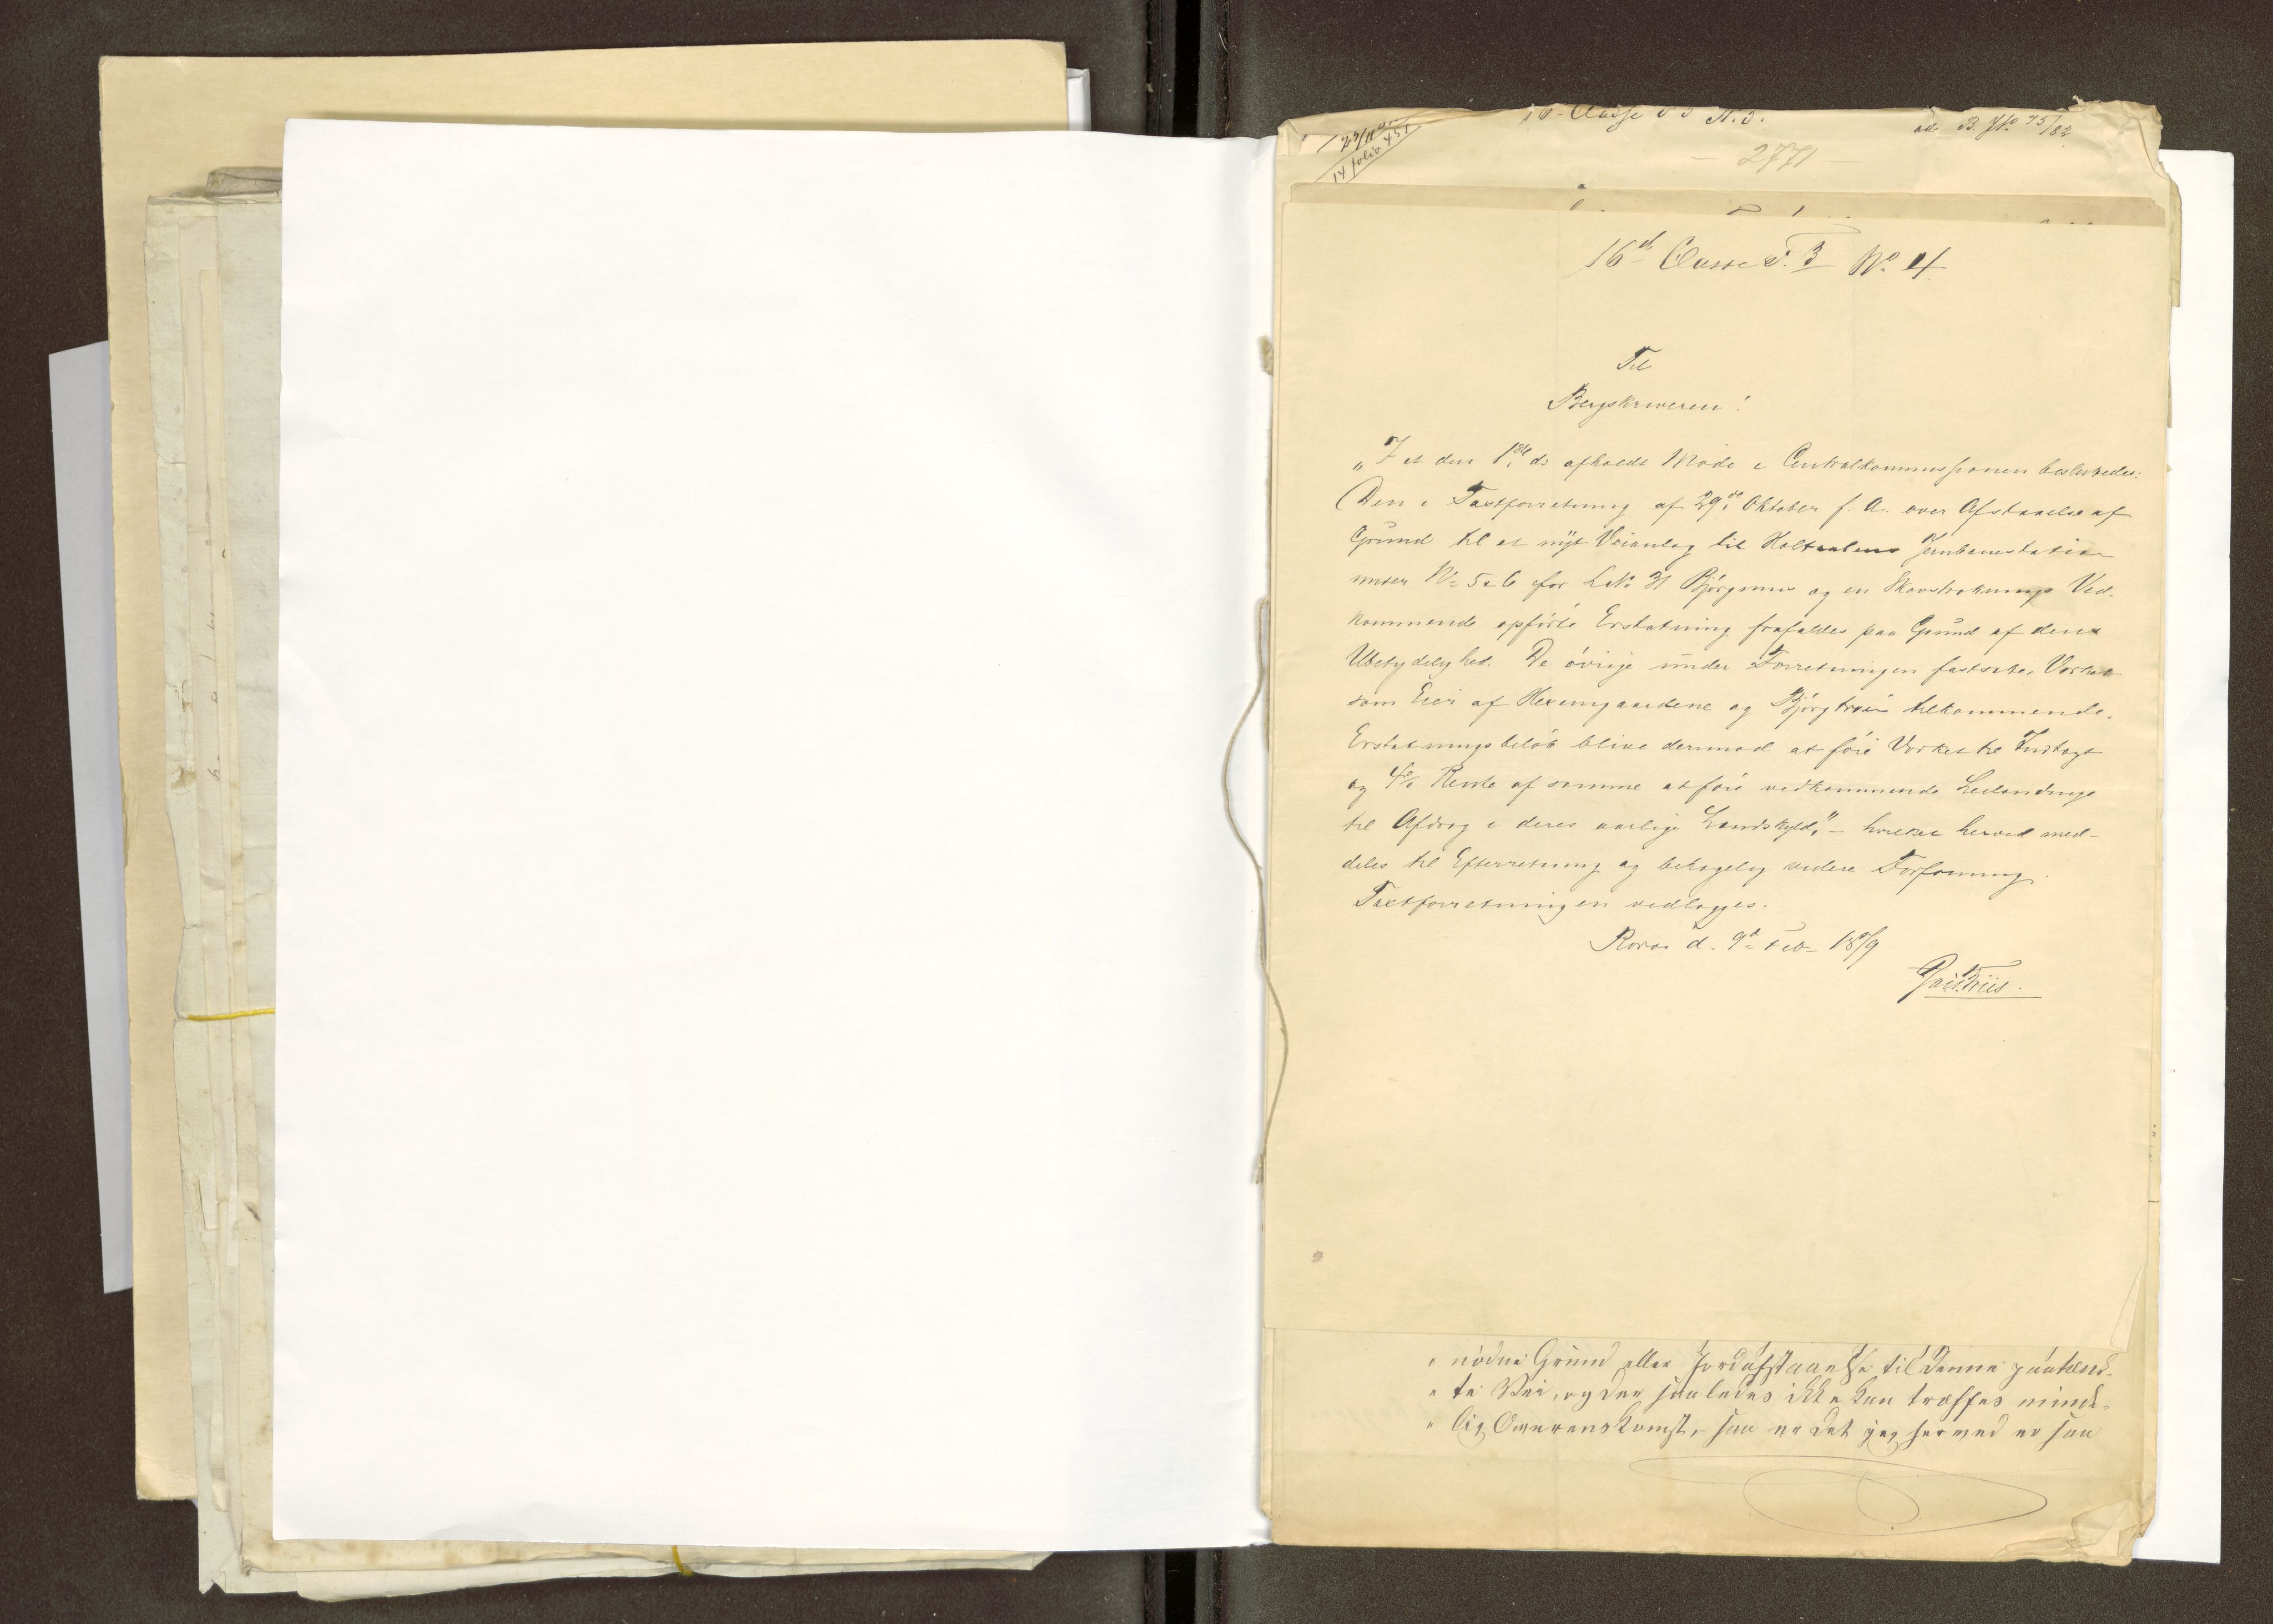 14 folio 451
16 Classe N. 3.
ad B J No 75/82
- 2771 -
16de Classe d. 3 No. 4
Til
Bergskriveren!
"I et den 1ste ds afholdt Möde i Centralkommissionen besluttedes:
Den i Taxtforretning af 29de Oktober f. A. over Afstaaelse af
Grund til et nyt Veianlæg til Holtaalens Jernbanestation
under No 5 & 6 for L.No 31 Björgmus og en Skovstræknings Ved-
kommende opförte Erstatning frafaldes paa Grund af dens
Ubetydelighed. De övrige under Forretningen fastsatte, Værket
som Eier af Hexemgaardene og Björgtröen tilkommende,
Erstatningsbelöb blive derimod at före Værket til Indtægt
og 4% Rente af samme at före vedkommende Leilændinge
til Afdrag i deres aarlige Landskyld," - hvilket herved med-
deles til Efterretning og behagelig videre Forföining.
Taxtforretningen vedlægges.
Röros d. 9de Feb. 1879
" nödne Grund eller Jordafstaaelse til denne paatænk-
" te Vei, og der saaledes ikke kan træffes minde-
" lig Overenskomst, saa er det jeg herved er saa